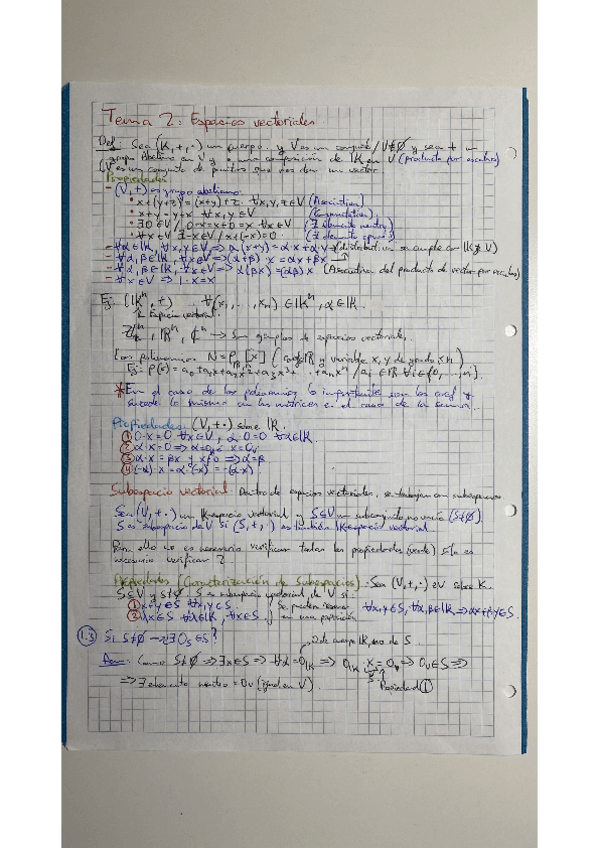 Tema 2: Espacios vectoriales
Def: Sea (K,+,·) un cuerpo y V es un conjunto / V≠∅ y sea + un
grupo Abeliano en V y · una composición de K en V (producto por escalares)
(V es un conjunto de puntos que nos dan un vector.
Propiedades
- (V,+) es grupo abeliano
• x+(y+z) = (x+y)+z ∀x,y,z∈V (Asociativa)
• x+y = y+x ∀x,y∈V (Conmutativa)
• ∃0∈V / 0+x=x+0=x ∀x∈V (∃ elemento neutro)
• ∀x∈V ∃-x∈V / x+(-x)=0 (∃ elemento opuesto)
- ∀α∈K, ∀x,y∈V ⇒ α(x+y) = α·x+α·y → (distributiva se cumple con K y V)
- ∀α,β∈K, ∀x∈V ⇒ (α+β)·x = αx+βx
- ∀α,β∈K, ∀x∈V ⇒ α(βx) = (αβ)x (Asociativa del producto de vector por escalar)
- ∀x∈V ⇒ 1·x=x
Ej: (Kⁿ,+) ∀(x₁,...,xₙ)∈Kⁿ, α∈K
Espacio vectorial
ℝⁿ, ℂⁿ → Son ejemplos de espacios vectoriales.
Los polinomios Pₙ[x] (coef ℝ y variable x, y de grado ≤n)
Ej: p(x) = a₀+a₁x+a₂x²+a₃x³+...+aₙxⁿ / aᵢ∈ℝ ∀i∈{0,...,n}
*En el caso de los polinomios lo importante son los coef y
sucede lo mismo en las matrices en el caso de la suma.
Propiedades: (V,+·) sobre K
① 0·x=0 ∀x∈V, α·0=0 ∀α∈K
② α·x=0 ⇒ α=0 ó x=0ᵥ
③ α·x=βx y x≠0 ⇒ α=β
④ (-α)·x = α·(-x) = -(α·x)
Subespacio vectorial: Dentro de espacios vectoriales, se trabajan con subespacios
Sea (V,+,·) un K-espacio vectorial y S⊆V un subconjunto no vacío (S≠∅).
S es subespacio de V si (S,+,·) es también K-espacio vectorial.
Para ello no es necesario verificar todas las propiedades (verde) sólo es
necesario verificar 2
Propiedades (Caracterización de Subespacios): Sea (V,+,·) eV sobre K.
S⊆V y S≠∅ S es subespacio vectorial de V si:
① x+y∈S ∀x,y∈S Se pueden resumir ∀x,y∈S, ∀α,β∈K ⇒ αx+βy∈S.
② αx∈S ∀α∈K, ∀x∈S en una propiedad
1.3 Si S≠∅ → ¿∃0ₛ∈S?
0 de cuerpo K, no de S
Dem: Como S≠∅ ⇒ ∃x∈S ⇒ ∀α=0ₖ ⇒ 0ₖ·x=0ᵥ ⇒ 0ᵥ∈S ⇒
Propiedad ①
⇒ ∃ elemento neutro = 0ᵥ (igual en V).